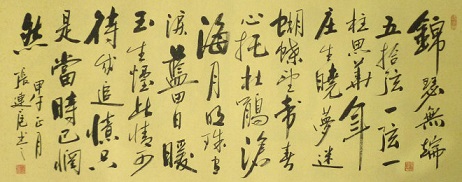 錦瑟無端
五拾弦一弦一
柱思華年
庄生曉夢迷
蝴蝶望帝春
心托杜鵑滄
海月明珠有
淚藍田日暖
玉生煙此情可
待成追憶只
是當時已惘
然
正月
張